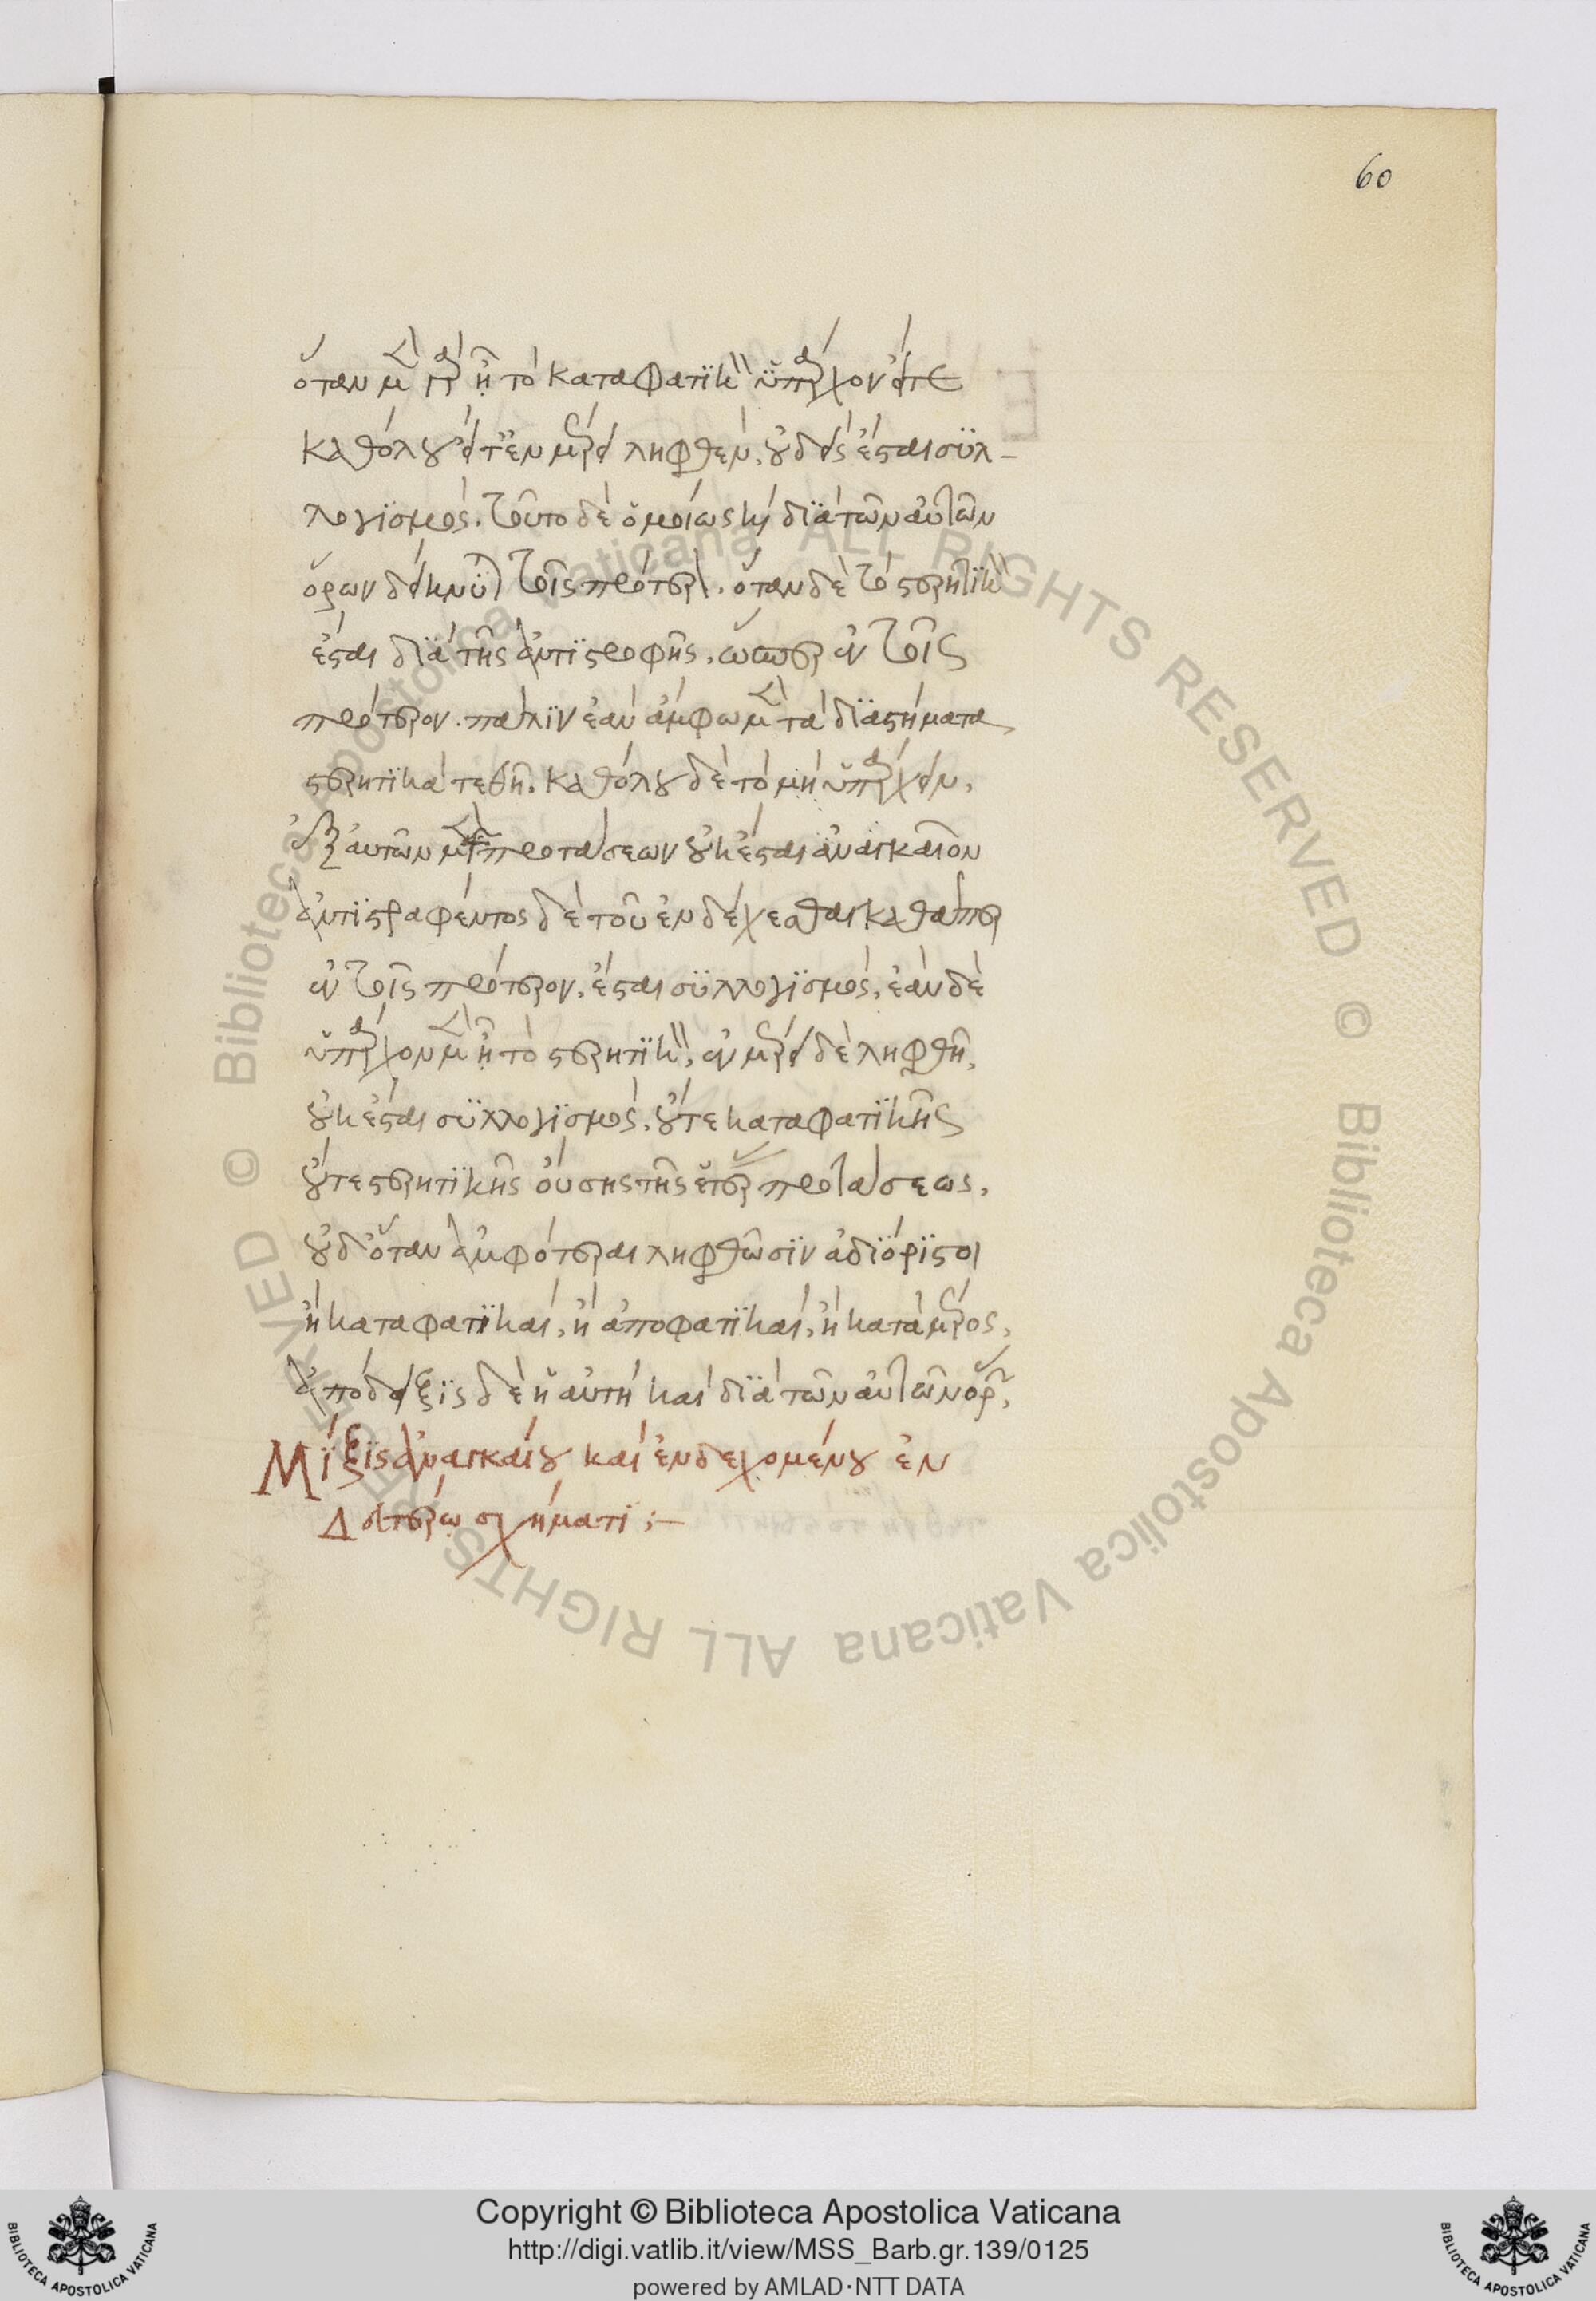 60
ὅταν μὲν γὰρ ᾖ τὸ καταφατικὸν ὑπάρχον εἴτε
καθόλου εἴτ' ἐν μέρει ληφθὲν, οὐδεὶς ἔσται συλ-
λογισμός. τοῦτο δὲ ὁμοίως καὶ διὰ τῶν αὐτῶν
ὅρων δείκνυται τοῖς πρότερον. ὅταν δὲ τὸ στερητικὸν
ἔσται διὰ τῆς ἀντιστροφῆς, ὥσπερ ἐν τοῖς
πρότερον. πάλιν ἐὰν ἄμφω μὲν τὰ διαστήματα
στερητικὰ τεθῇ. καθόλου δὲ τὸ μὴ ὑπάρχειν,
ἐξ αὐτῶν μὲν τῶν προτάσεων οὐκ ἔσται ἀναγκαῖον
ἀντιστραφέντος δὲ τοῦ ἐνδέχεσθαι καθάπερ
ἐν τοῖς πρότερον, ἔσται συλλογισμός, ἐὰν δὲ
ὑπάρχον μὲν ᾖ τὸ στερητικὸν, ἐν μέρει δὲ ληφθῇ,
οὐκ ἔσται συλλογισμός, οὔτε καταφατικῆς
οὔτε στερητικῆς οὔσης τῆς ἑτέρας προτάσεως,
οὐδ' ὅταν ἀμφότεραι ληφθῶσιν ἀδιόριστοι
ἢ καταφατικαί, ἢ ἀποφατικαί, ἢ κατὰ μέρος,
ἀπόδειξις δὲ ἡ αὐτὴ καὶ διὰ τῶν αὐτῶν ὅρων,
Μίξις ἀναγκαίου καὶ ἐνδεχομένου ἐν
Δευτέρῳ σχήματι :—
© Biblioteca Apostolica Vaticana ALL RIGHTS RESERVED © Biblioteca Apostolica Vaticana ALL RIGHTS RESERVED
Copyright © Biblioteca Apostolica Vaticana
http://digi.vatlib.it/view/MSS_Barb.gr.139/0125
powered by AMLAD·NTT DATA
BIBLIOTECA APOSTOLICA VATICANA
BIBLIOTECA APOSTOLICA VATICANA